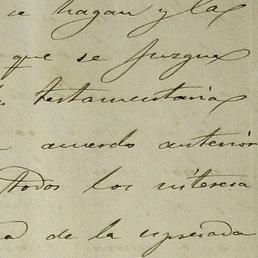 se hagan y la
que se juzgue
testamentaria
acuerdo anterior
todos los interesa
de la espresada